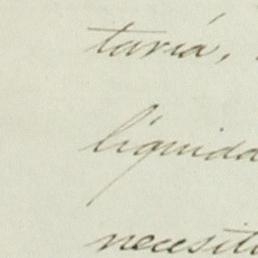 taría,
liquida
necesit